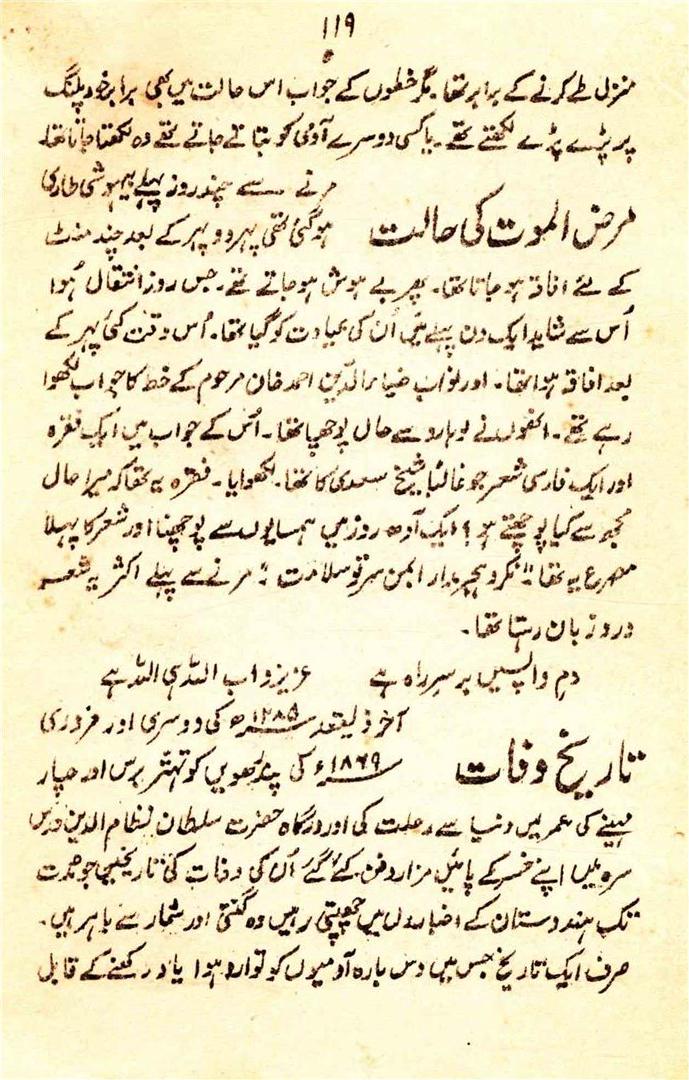 ۱۱۹
منزل طے کرنے کے برابر تھا۔ مگر خطوں کے جواب اس حالت میں بھی برابر خود پلنگ
پر پڑے پڑے لکھتے تھے۔ یا کسی دوسرے آدمی کو بتاتے جاتے تھے وہ لکھتا جاتا تھا۔
مرض الموت کی حالت
مرنے سے چند روز پہلے بیہوشی طاری
ہوگئی تھی پہر دو پہر کے بعد چند منٹ
کے لئے افاقہ ہو جاتا تھا۔ پھر بے ہوش ہو جاتے تھے۔ جس روز انتقال ہُوا
اُس سے شاید ایک دن پہلے میں اُن کی عیادت کو گیا تھا۔ اُس وقت کئی پہر کے
بعد افاقہ ہوا تھا۔ اور نواب ضیاء الدین احمد خان مرحوم کے خط کا جواب لکھوا
رہے تھے۔ انھوں نے لوہارو سے حال پوچھا تھا۔ اُس کے جواب میں ایک فقرہ
اور ایک فارسی شعر جو غالباً شیخ سعدی کا تھا۔ لکھوایا۔ فقرہ یہ تھا کہ میرا حال
مجھ سے کیا پوچھتے ہو؟ ایک آدھ روز میں ہمسایوں سے پوچھنا اور شعر کا پہلا
مصرع یہ تھا "نکرد ہجر مدارا بمن سر تو سلامت" مرنے سے پہلے اکثر یہ شعر
درد زبان رہتا تھا۔
دمِ واپسیں بر سرِ راہ ہے عزیزو اب اللہ ہی اللہ ہے
تاریخ وفات
آخر ذیقعد ۱۲۸۵ھ کی دوسری اور فروری
۱۸۶۹ء کی پندرھویں کو تہتر برس اور چار
مہینے کی عمر میں دنیا سے رحلت کی اور درگاہ حضرت سلطان نظام الدین قدس
سرہ میں اپنے خسر کے پائیں مزار دفن کئے گئے اُن کی وفات کی تاریخیں جو مدت
تک ہندوستان کے اخباروں میں چھپتی رہیں وہ گنتی اور شمار سے باہر ہیں۔
صرف ایک تاریخ جس میں دس بارہ آدمیوں کو توارد ہوا یاد رکھنے کے قابل